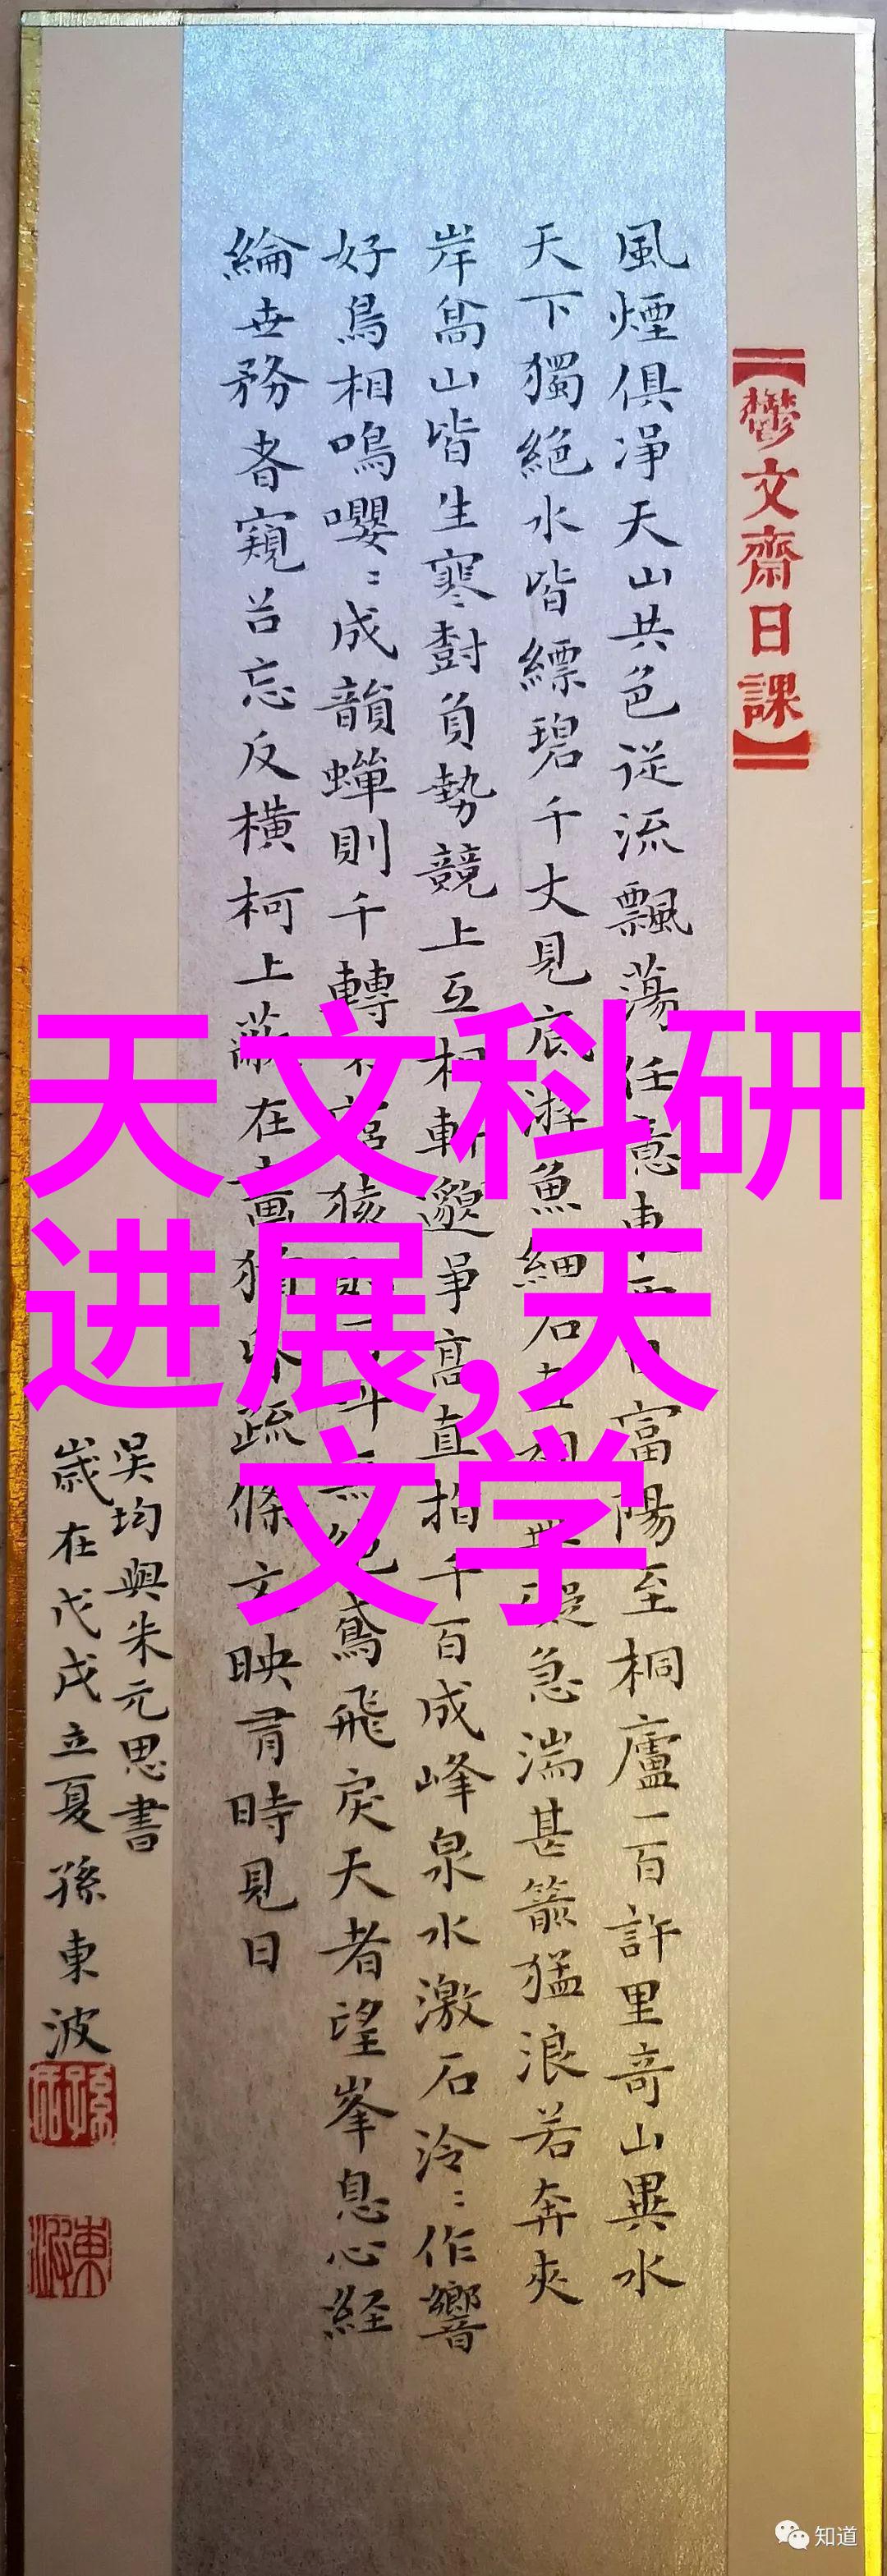 【鬱文齋日課】
風煙俱淨天山共色從流飄蕩任意東西自富陽至桐廬一百許里奇山異水
天下獨絕水皆縹碧千丈見底游魚細石直視無礙急湍甚箭猛浪若奔夾
岸高山皆生寒樹負勢競上互相軒邈爭高直指千百成峰泉水激石泠〻作響
好鳥相鳴嚶〻成韻蟬則千轉不窮猿則百叫無絕鳶飛戾天者望峯息心経
綸世務者窺谷忘反橫柯上蔽在晝猶昏疏條交映有時見日
吳均與朱元思書
歲在戊戌立夏孫東波
天文科研
进展,天
文学
知道